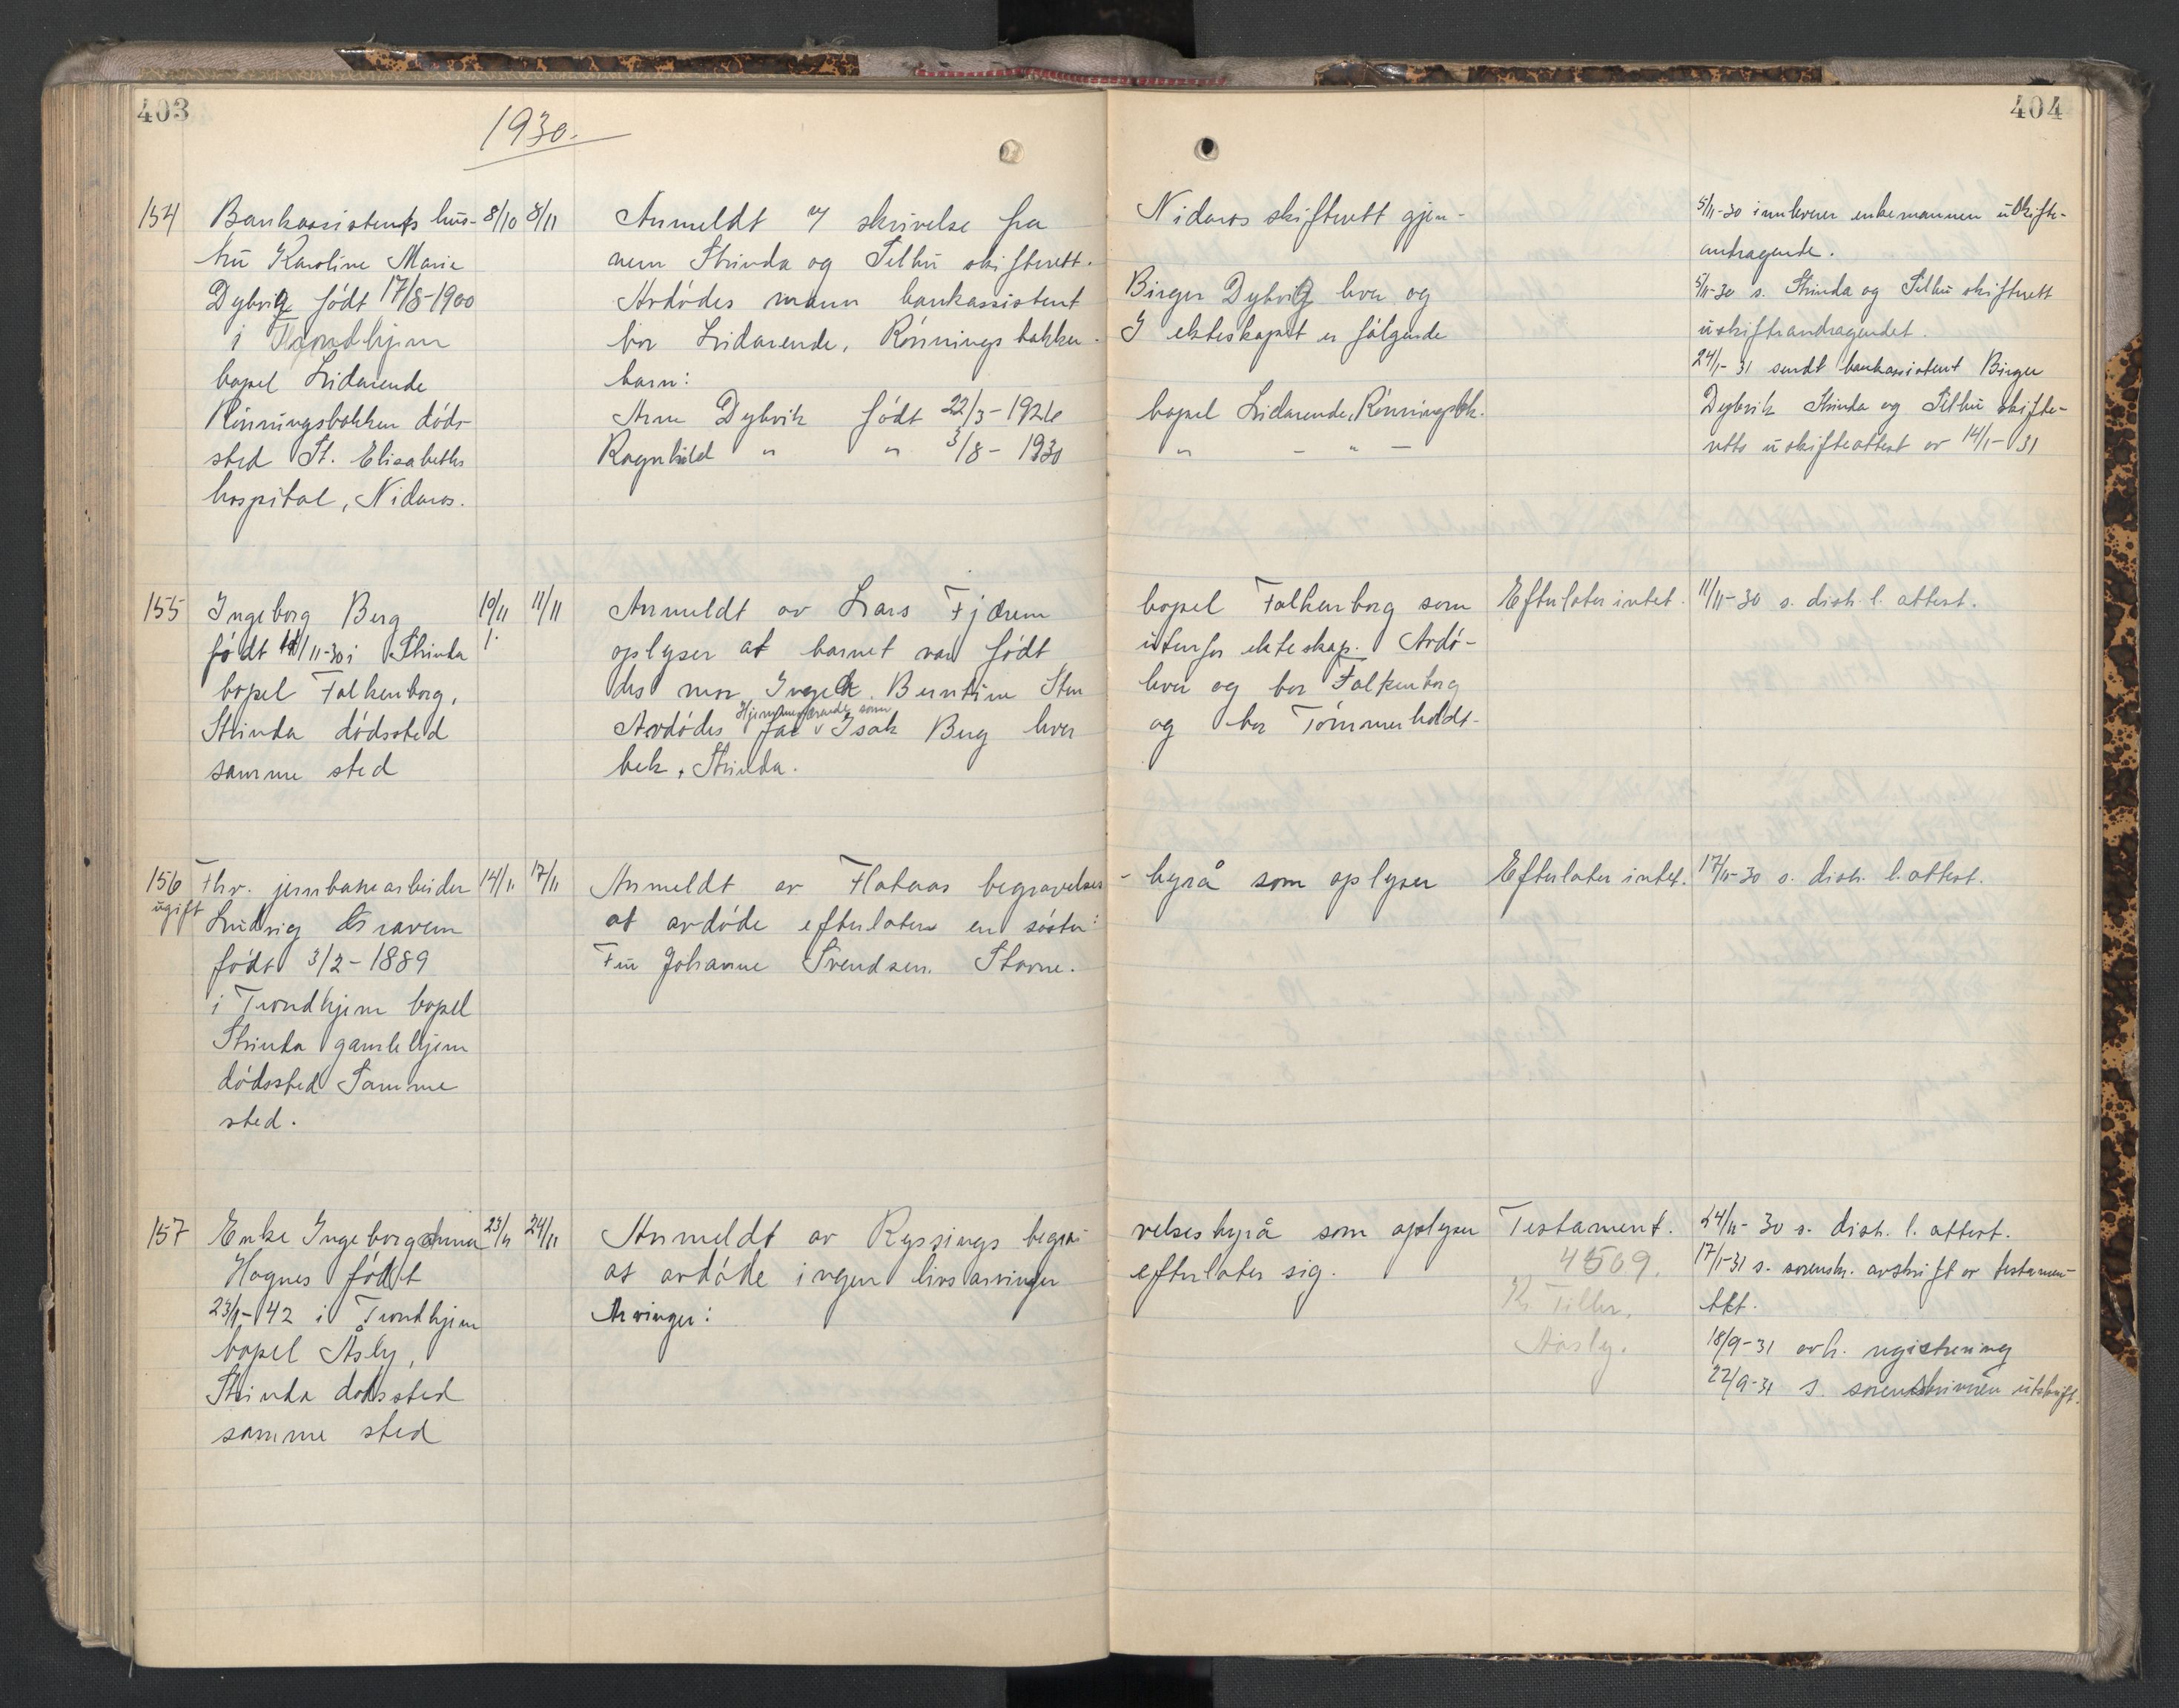 403
1930.
404
154
Bankassistents hus-
8/10
8/11
tru Karoline Marie
Dybvig født 17/8-1900
i Trondhjem
bopel Lidarende
Rønningsbakken døds-
sted St. Elisabeths
hospital, Nidaros.
Anmeldt v/ skrivelse fra Nidaros skifterett gjen-
nem Strinda og Selbu skifterett.
Avdødes mann bankassistent Birger Dybvig lever og
bor Lidarende, Rønningsbakken. I ekteskapet er følgende
barn:
Arne Dybvik født 22/3-1926 bopel Lidarende, Rønningsbk.
Ragnhild " " 3/8-1930 " - " -
5/11-30 innleverer enkemannen uskifte-
andragende.
5/11-30 s. Strinda og Selbu skifterett
uskifteandragendet.
24/1-31 sendt bankassistent Birger
Dybvik Strinda og Selbu skifte-
retts uskifteattest av 14/1-31
155
Ingeborg Berg
10/11
11/11
født 10/11-30 i Strinda
bopel Falkenborg,
Strinda dødssted
samme sted
Anmeldt av Lars Fjærem bopel Falkenborg som
oplyser at barnet var født utenfor ekteskap. Avdø-
des mor, Berntine Sten lever og bor Falkenborg
Hjemmeværende som
Avdødes far v Isak Berg lever og bor Tømmerholdt-
bek, Strinda.
Efterlater intet.
11/11-30 s. distr. l. attest.
156
ugift
Fhv. jernbanearbeider
14/11
17/11
Ludvig Graven
født 3/2-1889
i Trondhjem bopel
Strinda gamlehjem
dødssted Samme
sted.
Anmeldt av Flataas begravelses-byrå som oplyser
at avdøde efterlater en søster:
Fru Johanne Svendsen. Stavne.
Efterlater intet.
17/11-30 s. distr. l. attest.
157
Enke Ingeborg Anna
23/11
24/11
Hognes født
23/9-42 i Trondhjem
bopel Åsly,
Strinda dødssted
samme sted
Anmeldt av Ryssings begra-velsesbyrå som oplyser
at avdøde ingen livsarvinger efterlater sig.
Arvinger:
Testament.
4509.
Tiller,
Aasly.
24/11-30 s. distr. l. attest.
17/1-31 s. sorenskr. avskrift av testamen-
tet.
18/9-31 avh. registrering
22/9-31 s. sorenskriveren utskrift.